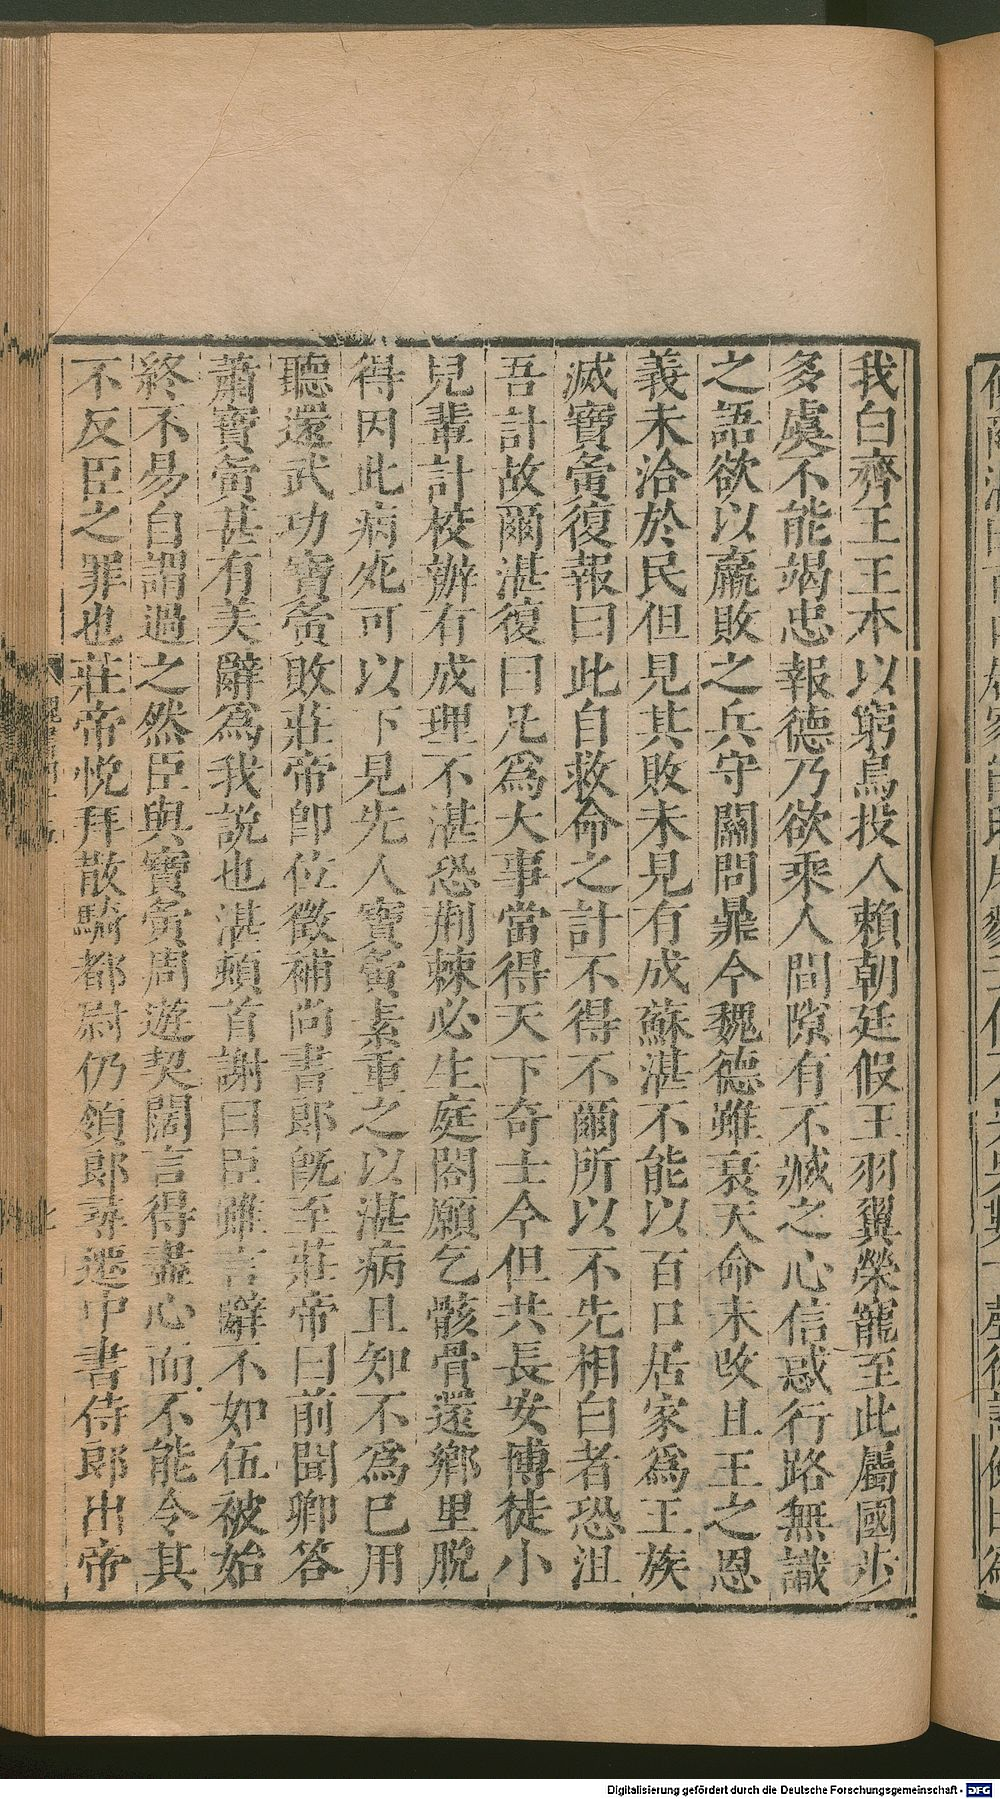 我白齊王王本以窮鳥投人賴朝廷假王羽翼榮寵至此屬國步
多虞不能竭忠報德乃欲乘人間隙有不臧之心信惑行路無識
之語欲以羸敗之兵守關問鼎今魏德雖衰天命未改且王之恩
義未洽於民但見其敗未見有成蘇湛不能以百口居家爲王族
滅寶夤復報曰此自救命之計不得不爾所以不先相白者恐沮
吾計故爾湛復曰凡爲大事當得天下奇士今但共長安博徒小
兒輩計校辦有成理不湛恐荊棘必生庭閤願乞骸骨還鄉里脫
得因此病死可以下見先人寶夤素重之以湛病且知不爲已用
聽還武功寶夤敗莊帝卽位徵補尚書郎旣至莊帝曰前聞卿答
蕭寶夤甚有美辭爲我說也湛頓首謝曰臣雖言辭不如伍被始
終不易自謂過之然臣與寶夤周遊契闊言得盡心而不能令其
不反臣之罪也莊帝悅拜散騎都尉仍領郎尋遷中書侍郎出帝
Digitalisierung gefördert durch die Deutsche Forschungsgemeinschaft - DFG